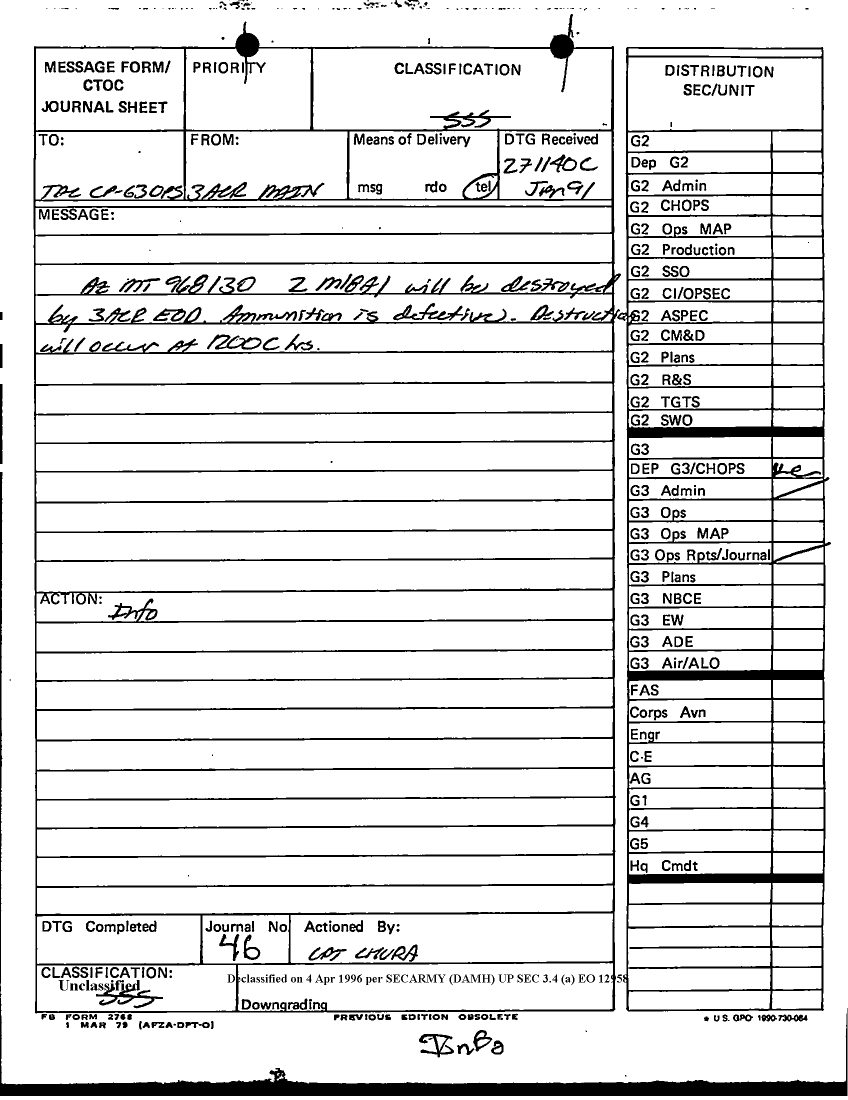 MESSAGE FORM/
CTOC
JOURNAL SHEET
PRIORITY
CLASSIFICATION
SSS
TO:
TAC CP-G3OPS
FROM:
3ACR MAIN
Means of Delivery
msg rdo tel
DTG Received
271140C
Jan 91
MESSAGE:
At MT 968130 2 M18A1 will be destroyed
by 3ACR EOD. Ammunition is defective. Destruction
will occur at 1200C hrs.
ACTION:
Info
DTG Completed
Journal No.
46
Actioned By:
CPT CHURA
CLASSIFICATION:
Unclassified
SSS
Declassified on 4 Apr 1996 per SECARMY (DAMH) UP SEC 3.4 (a) EO 12958
Downgrading
FB FORM 2768
1 MAR 79 (AFZA-DPT-O)
PREVIOUS EDITION OBSOLETE
DISTRIBUTION
SEC/UNIT
G2
Dep G2
G2 Admin
G2 CHOPS
G2 Ops MAP
G2 Production
G2 SSO
G2 CI/OPSEC
G2 ASPEC
G2 CM&D
G2 Plans
G2 R&S
G2 TGTS
G2 SWO
G3
DEP G3/CHOPS
G3 Admin
G3 Ops
G3 Ops MAP
G3 Ops Rpts/Journal
G3 Plans
G3 NBCE
G3 EW
G3 ADE
G3 Air/ALO
FAS
Corps Avn
Engr
C-E
AG
G1
G4
G5
Hq Cmdt
★ U.S. GPO 1990-730-064